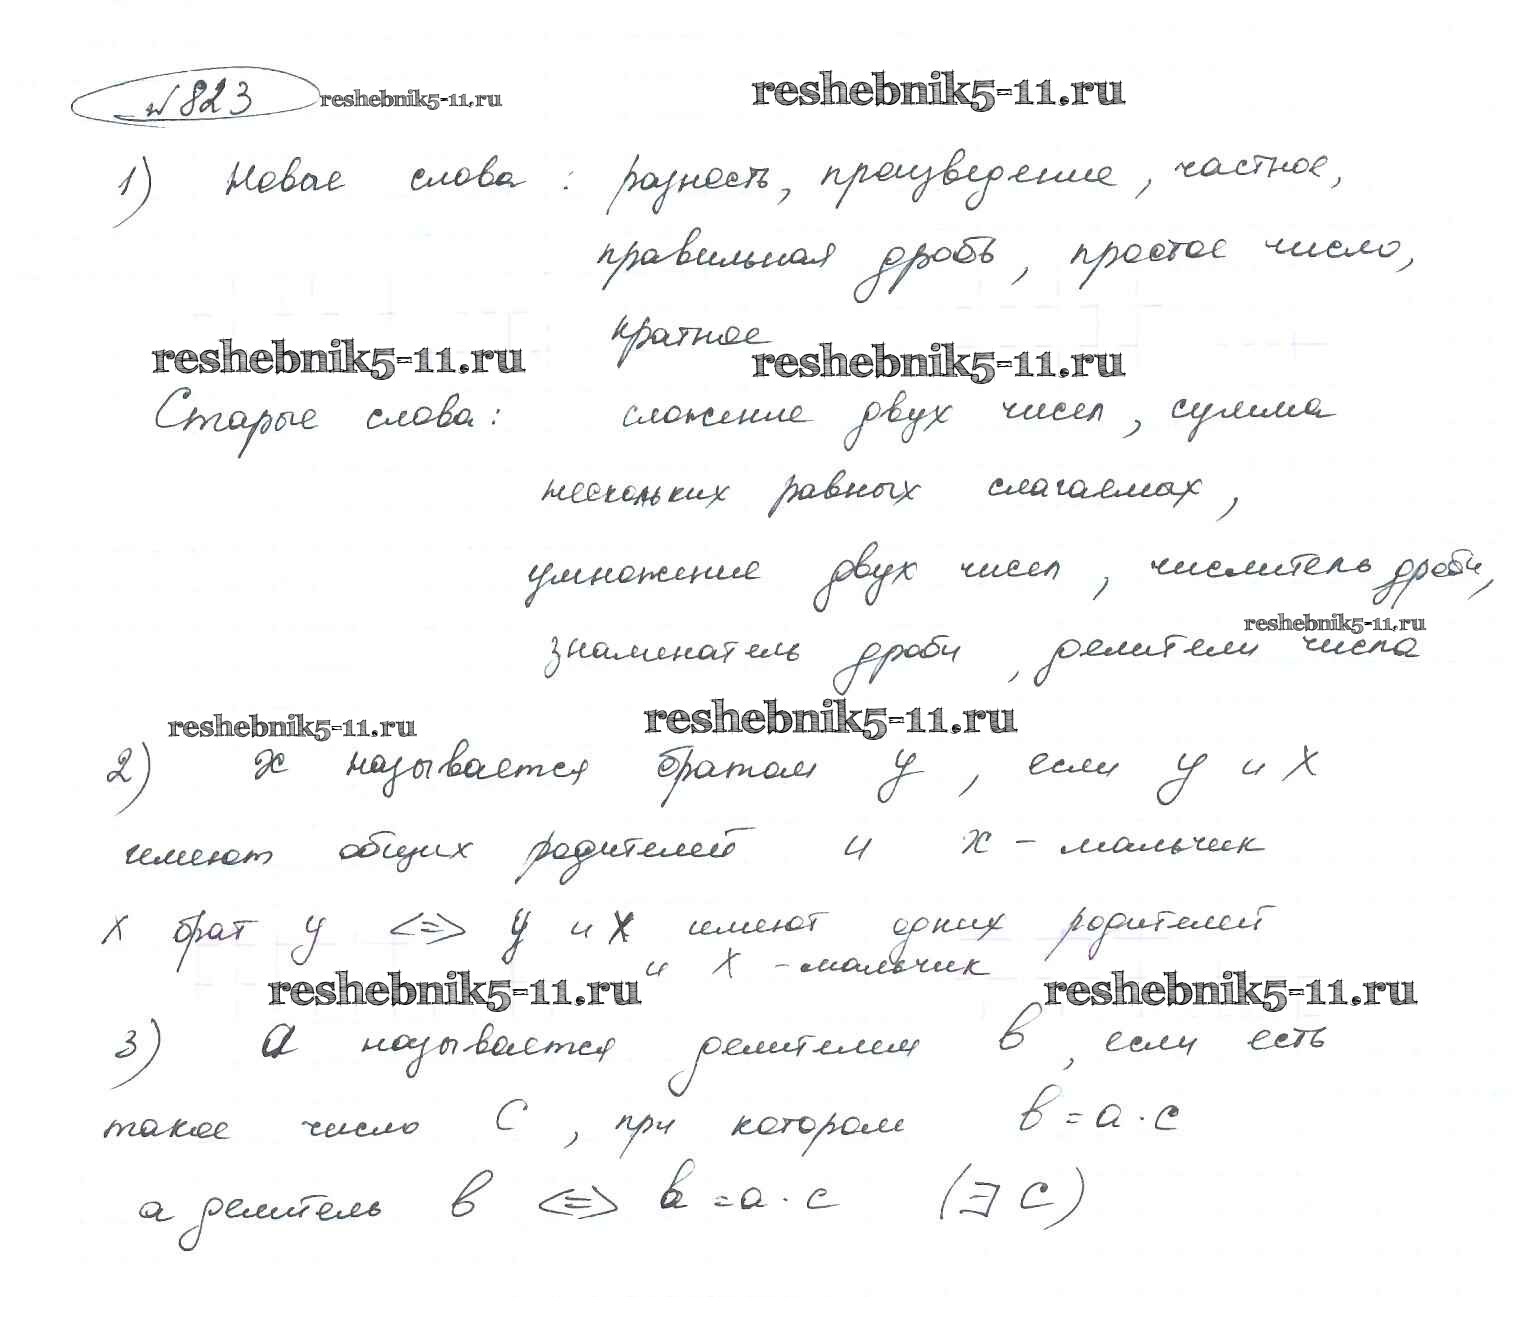 № 823 reshebnik5-11.ru reshebnik5-11.ru
1) Новые слова: разность, произведение, частное,
правильная дробь, простое число,
кратное
reshebnik5-11.ru reshebnik5-11.ru
Старые слова: сложение двух чисел, сумма
нескольких равных слагаемых,
умножение двух чисел, числитель дроби,
reshebnik5-11.ru
знаменатель дроби, делители числа
reshebnik5-11.ru reshebnik5-11.ru
2) x называется братом y, если y и x
имеют общих родителей и x - мальчик
x брат y <=> y и x имеют одних родителей
и x - мальчик
reshebnik5-11.ru reshebnik5-11.ru
3) a называется делителем b, если есть
такое число c, при котором b = a · c
a делитель b <=> b = a · c (∃ c)